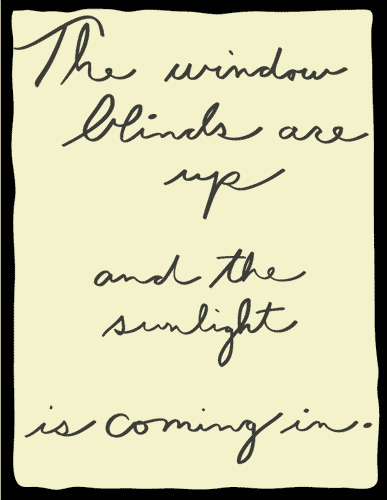 The window
blinds are
up
and the
sunlight
is coming in.